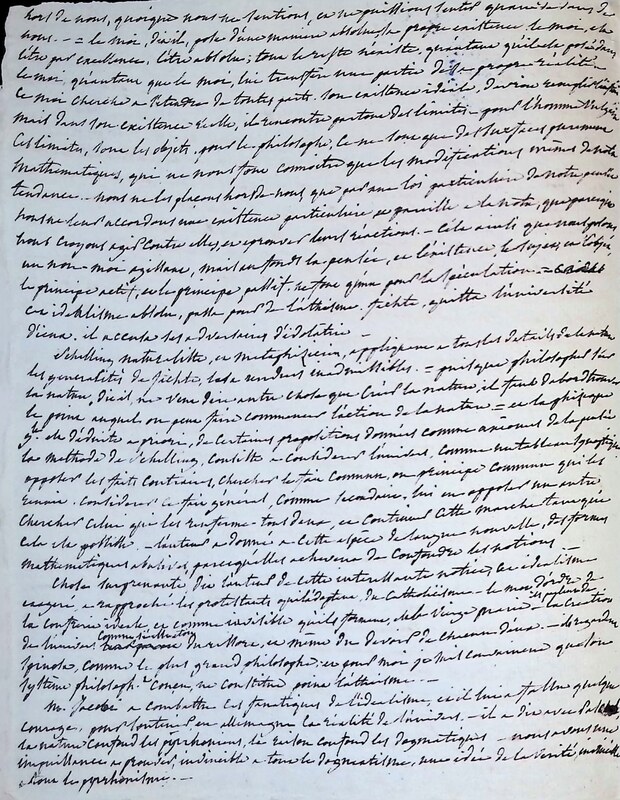 hors de nous, quoique nous ne sentions, et ne puissions sentir que au dedans de
nous. — = le moi, dit-il, pose d'une manière absolue sa propre existence. le moi, est
l'être par excellence, l'être absolu; tout le reste n'existe, qu'autant qu'il est posé dans
le moi, qu'autant que le moi, lui transfère une partie de sa propre réalité
ce moi cherche à étendre de toutes parts son existence idéale,
mais dans son existence réelle, il rencontre partout des limites — pour l'homme vulgaire
ces limites, sont les objets, pour le philosophe, ce ne sont que des surfaces purement
mathématiques, qui ne nous font connoitre que les modifications mêmes de notre
tendance. — nous ne les plaçons hors de nous, que par une loi particulière de notre pensée
nous ne leur accordons une existence particulière et pareille à la notre, que parceque
nous croyons agir contre elles, et éprouver leurs réactions. — C'est ainsi que nous posons
un non-moi agissant, mais au fond la pensée, et l'existence, le sujet, et l'objet,
le principe actif, et le principe passif, ne font qu'un pour la spéculation. —
cet idéalisme absolu, passa pour de l'athéisme. fichte, quitta l'université
d'iena. il accusa ses adversaires d'idolatrie —
Schelling, naturaliste, et métaphysicien, appliqua à tous les détails de la nature
les généralités de fichte, les rendre inadmissibles. = puisque philosopher sur
la nature, dit-il, ne veut dire autre chose que créer la nature, il faut d'abord trouver
le point auquel on peut faire commencer l'action de la nature = et la physique
gle est déduite a priori, de certaines propositions données comme axiomes de la pensée
la méthode de Schelling, consiste à considérer l'univers, comme un tableau synoptique
opposer les faits contraires, chercher le fait commun, ou principe commun qui les
réunit. considérer ce fait général, comme secondaire, lui en opposer un autre
chercher celui qui les renferme tous deux, et continuer cette marche tant que
cela est possible. — l'auteur a donné à cette espèce de langue nouvelle, des formes
mathématiques abusives, parcequ'elles achevent de confondre les notions.
Chose surprenante, dit l'auteur de cette intéressante notice, cet idéalisme
exagéré, a rapproché les protestants qui l'adoptent, du catholicisme — le moi
la confrérie idéale, et comme invisible qu'ils forment, est la vierge marie — la création
de l'univers commune histoire du reste, et même du devoir de chacun d'eux. — ils regardent
Spinosa, comme le plus grand philosophe. et pour moi je suis convaincu que son
système philosophe. conçu, ne constitue point l'athéisme. —
M. Jacobi a combattu ces fanatiques de l'idéalisme, et il lui a fallu quelque
courage, pour soutenir en allemagne la réalité de l'univers. — il a dit avec Pascal
la nature confond les pyrrhoniens, la raison confond les dogmatiques — nous avons une
impuissance à prouver, invincible à tout le dogmatisme, une idée de la vérité, invincible
à tout le pyrrhonisme. —